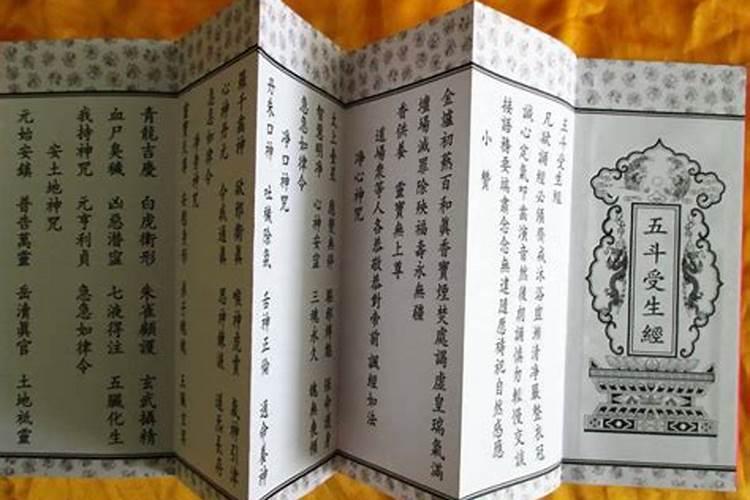 五斗受生經
五斗受生經
凡欲誦經必須齋戒沐浴盥漱清淨嚴整衣冠
誠心定氣叩齒演音然後朗誦慎勿輕慢交談
接語務要端肅念念無違隨應禱祀自然感應
小贊
金爐初爇百和眞香寶煙焚處謁虛皇瑞氣滿
壇場滅罪除殃福壽永無疆
香供養 靈寶無上尊
道場衆等人各恭敬恭對帝前 誦經如法
淨心神咒
太上臺星 應變無停 驅邪縛魅 保命護身
智慧明淨 心神安寍 三魂永久 魄無喪傾
急急如律令
淨口神咒
丹朱口神 吐穢除氛 舌神正倫 通命養神
羅千齒神 卻邪衛眞 喉神虎賁 炁神引津
心神丹元 令我通眞 思神鍊液 道炁長存
急急如律令
淨身神咒
靈寶天尊 安慰身形 弟子魂魄 五臟玄冥
青龍吉慶 白虎衛形 朱雀顧護 玄武攝精
血尸臭穢 凶惡潛寍 七液得注 五臟化生
我持神咒 元亨利貞 急急如律令
安土地神咒
元始安鎮 普告萬靈 岳清眞官 土地祗靈